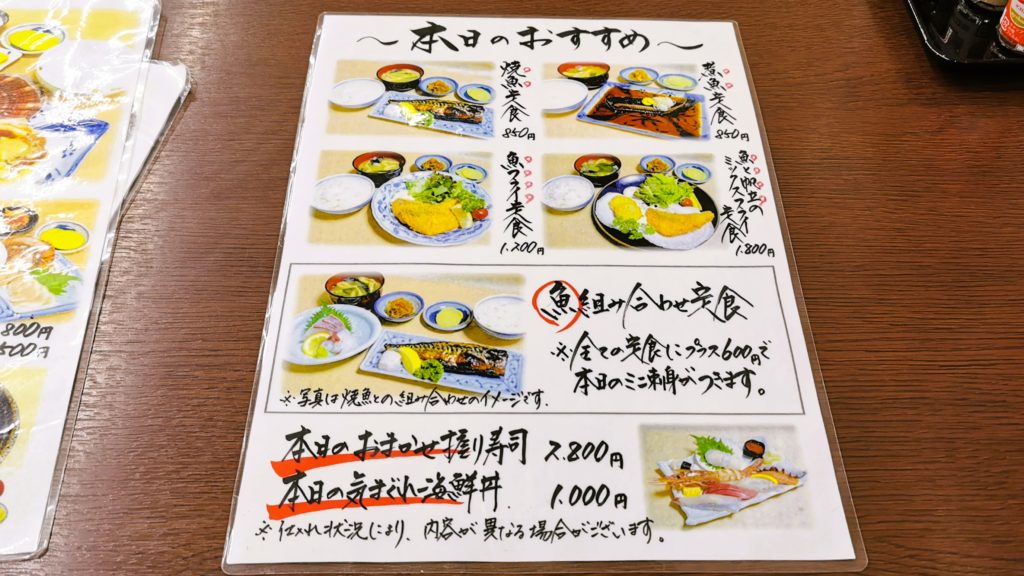 〜本日のおすすめ〜
焼魚定食
850円
煮魚定食
850円
魚フライ定食
1.200円
魚と帆立の
ミックスフライ
定食
1.800円
魚組み合わせ定食
※全ての定食にプラス600円で
本日のミニ刺身がつきます。
※写真は焼魚との組み合わせのイメージです.
本日のおまかせ握り寿司 2.800円
本日の気まぐれ海鮮丼 1.000円
※仕入れ状況により、内容が異なる場合がございます。
800円
500円